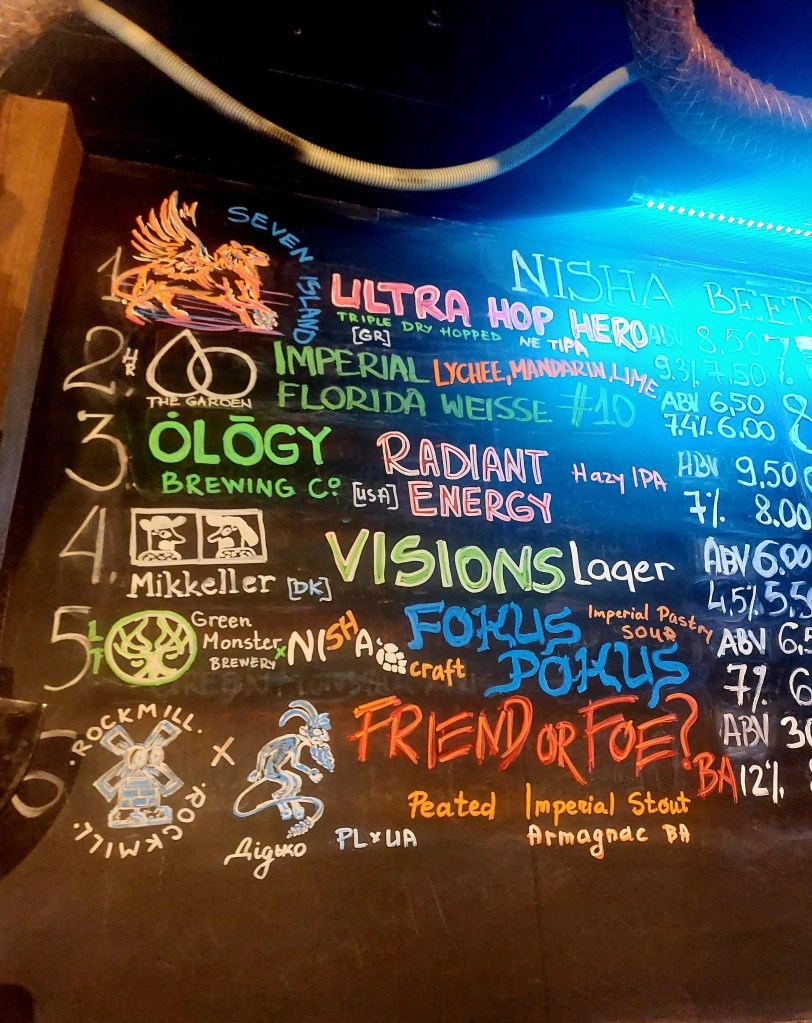 NISHA BEET
1. SEVEN ISLAND ULTRA HOP HERO ABV 8,50
TRIPLE DRY HOPPED NE TIPA
[GR] 9.3% 7,50
2. HR THE GARDEN IMPERIAL LYCHEE, MANDARIN, LIME
FLORIDA WEISSE #10 ABV 6,50
7.4% 6.00
3. ÓLŌGY RADIANT Hazy IPA ABV 9,50
BREWING Cº [USA] ENERGY 7% 8.00
4. VISIONS Lager ABV 6.00
Mikkeller [DK] 4,5% 5,5
5. LT Green Monster BREWERY x NISHA craft
FOKUS POKUS Imperial Pastry SOUR ABV 6,5
7% 6
6. ROCKMILL ROCKMILL x Дідько PL x UA
FRIEND OR FOE? ABV 30
BA 12%
Peated Imperial Stout
Armagnac BA